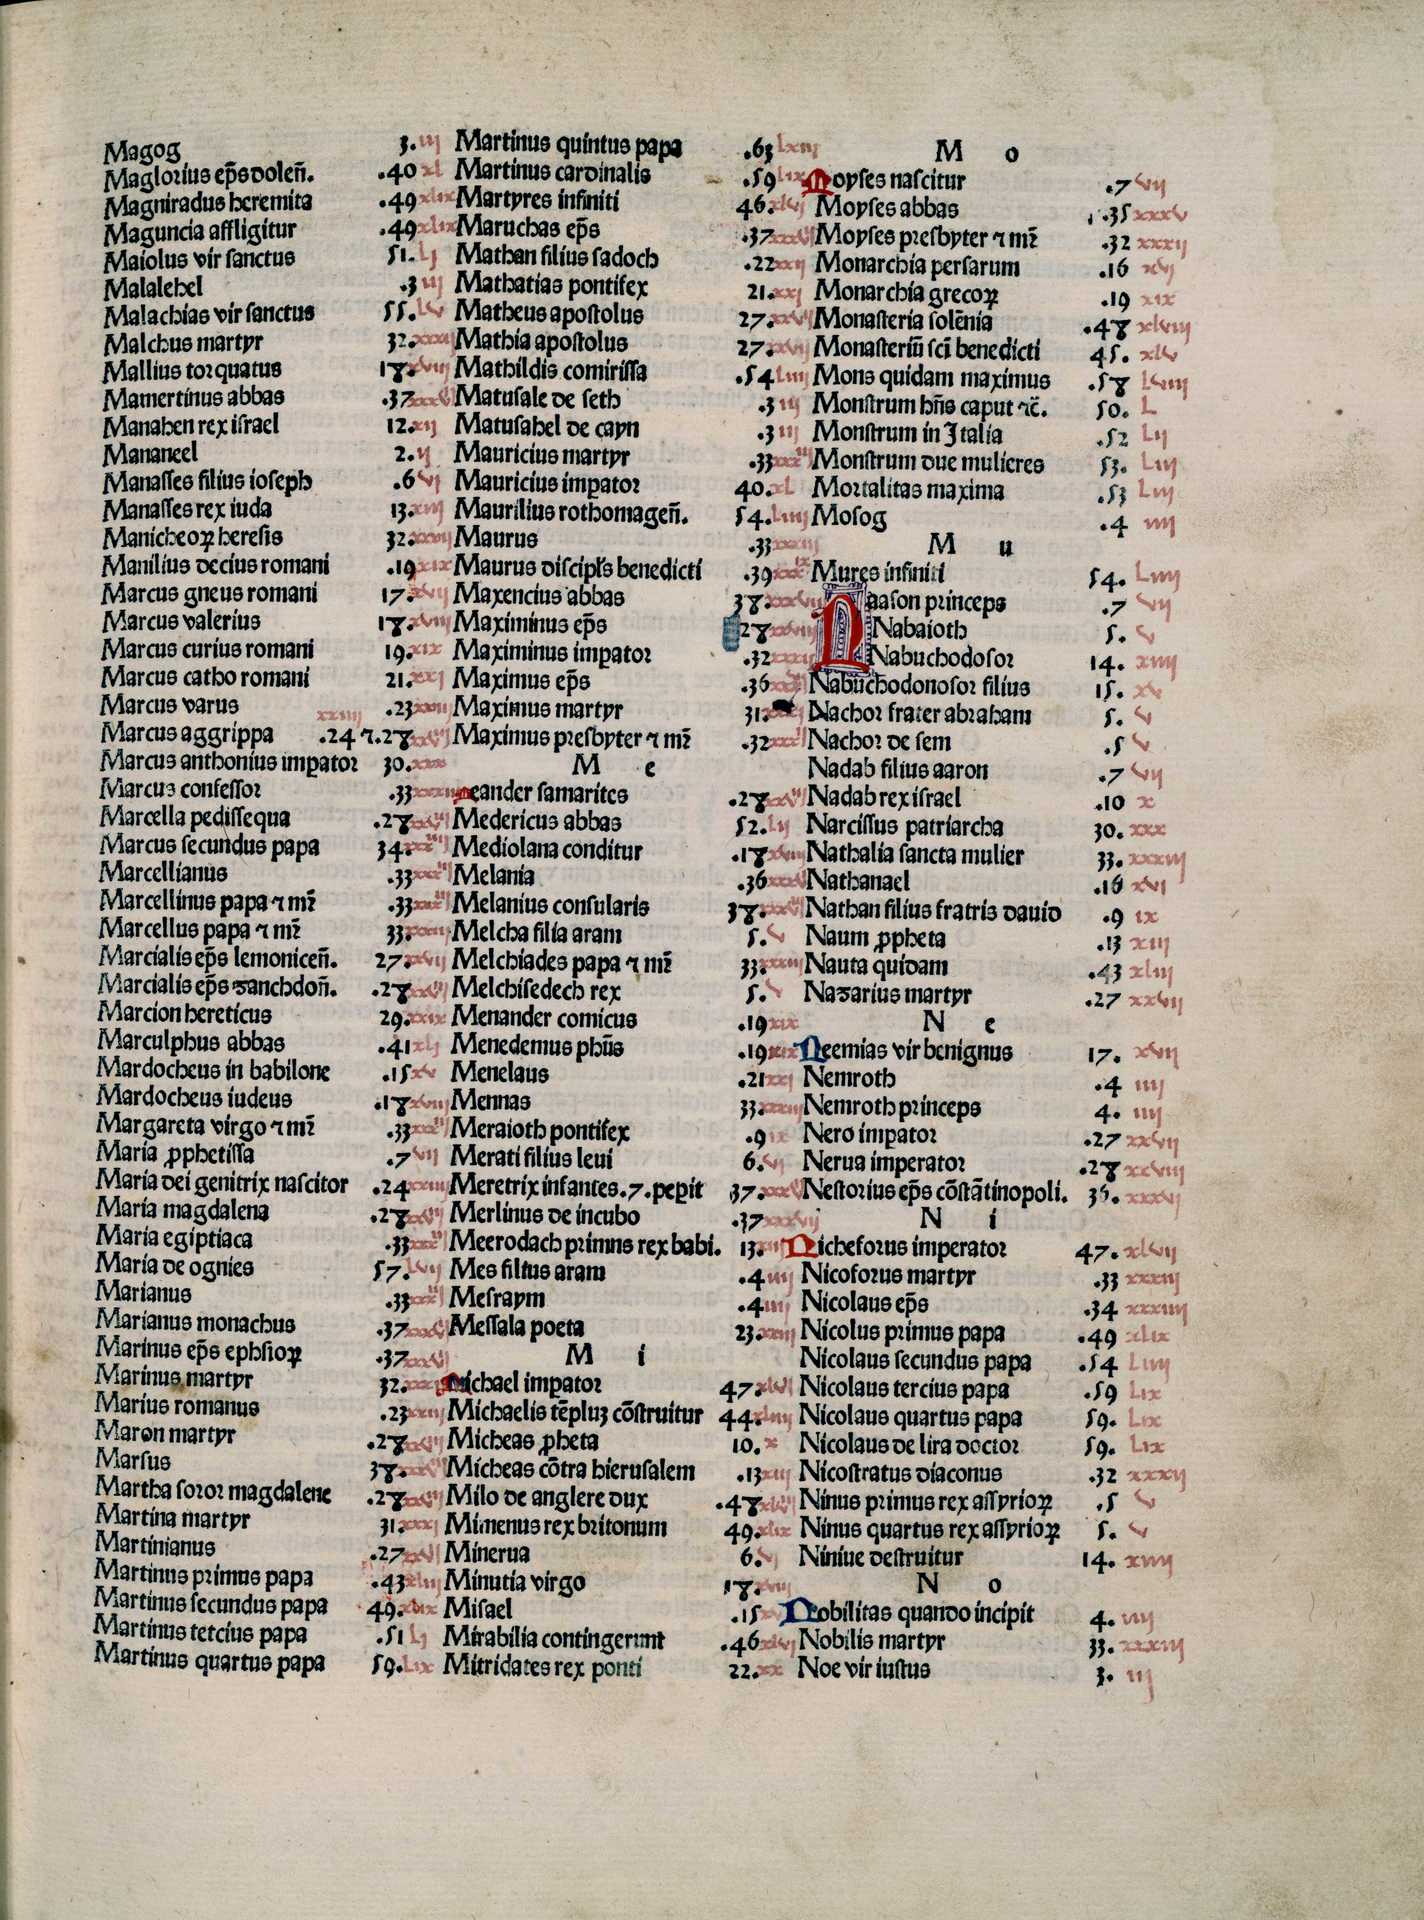 Magog 3. iij
Maglorius ep̄s dolen̄. .40 xl
Magniradus heremita .49 xlix
Maguncia affligitur .49 xlix
Maiolus vir sanctus 51. Lj
Malalehel .3 iij
Malachias vir sanctus 55. Lv
Malchus martyr 32. xxxij
Mallius torquatus 18. xviij
Mamertinus abbas .37
Manahen rex israel 12. xij
Mananeel 2. ij
Manasses filius ioseph .6 vj
Manasses rex iuda 13. xiij
Manicheoꝝ heresis 32.
Manilius decius romani .19 xix
Marcus gneus romani 17. xvij
Marcus valerius 18. xviij
Marcus curius romani 19. xix
Marcus catho romani 21. xxj
Marcus varus .23 xxiij
xxiiij
Marcus aggrippa .24 ⁊ .28
Marcus anthonius imꝑator 30. xxx
Marcus confessor .33
Marcella pedissequa .28
Marcus secundus papa 34.
Marcellianus .33
Marcellinus papa ⁊ mr̄ .33
Marcellus papa ⁊ mr̄ 33.
Marcialis ep̄s lemonicen̄. 27. xxvij
Marcialis ep̄s ʒanchdon̄. .28
Marcion hereticus 29. xxix
Marculphus abbas .41 xlj
Mardocheus in babilone .15 xv
Mardocheus iudeus .18 xviij
Margareta virgo ⁊ mr̄ .33
Maria ꝓphetissa .7 vij
Maria dei genitrix nascitor .24 xxiiij
Maria magdalena .28
Maria egiptiaca .33
Maria de ognies 57. Lvij
Marianus .33
Marianus monachus .37
Marinus ep̄s ephsioꝝ .37
Marinus martyr 32.
Marius romanus .23 xxiij
Maron martyr .28
Marsus 38.
Martha soror magdalene .28
Martina martyr 31. xxxj
Martinianus .27
Martinus primus papa .43 xliij
Martinus secundus papa 49. xlix
Martinus tetcius papa .51 Lj
Martinus quartus papa 59. Lix
Martinus quintus papa .63 Lxiij
Martinus cardinalis .59 Lix
Martyres infiniti 46. xlvj
Maruchas ep̄s .37
Mathan filius sadoch .22 xxij
Mathatias pontifex 21. xxj
Matheus apostolus 27. xxvij
Mathia apostolus 27. xxvij
Mathildis comirissa .54 Liiij
Matusale de seth .3 iij
Matusahel de cayn .3 iij
Mauricius martyr .33
Mauricius imꝑator 40. xL
Maurilius rothomagen̄. 54. Liiij
Maurus .33 xxxiij
Maurus discipl's benedicti .39
Maxencius abbas 38. xxxviij
Maximinus ep̄s 28 xxviij
Maximinus imꝑator .32 xxxij
Maximus ep̄s .36
Maximus martyr 31.
Maximus presbyter ⁊ mr̄ .32
M e
Meander samarites .28
Medericus abbas 52. Lij
Mediolana conditur .18 xviij
Melania .36
Melanius consularis 38.
Melcha filia aram 5. v
Melchiades papa ⁊ mr̄ 33. xxxiij
Melchisedech rex 5. v
Menander comicus .19 xix
Menedemus phūs .19 xix
Menelaus .21 xxj
Mennas 33. xxxiij
Meraioth pontifex .9 ix
Merati filius leui 6. vj
Meretrix infantes .7. peꝑit 37.
Merlinus de incubo .37 xxxvij
Meerodach primns rex babi. 13. xiij
Mes filius aram .4 iiij
Mesraym .4 iiij
Messala poeta 23. xxiij
M i
Michael imꝑator 47. xlvij
Michaelis tēpluʒ cōstruitur 44. xliiij
Micheas ꝓheta 10. x
Micheas cōtra hierusalem .13 xiij
Milo de anglere dux .48
Mimenus rex britonum 49. xlix
Minerua 6. vj
Minutia virgo 18. xviij
Misael .15 xv
Mirabilia contingerunt .46 xlvj
Mitridates rex ponti 22. xx
M o
Moyses nascitur .7 vij
Moyses abbas .35 xxxv
Moyses presbyter ⁊ mr̄ .32 xxxij
Monarchia persarum .16 xvj
Monarchia grecoꝝ .19 xix
Monasteria solēnia .48 xlviij
Monasteriū sci̅ benedicti 45. xlv
Mons quidam maximus .58 Lviij
Monstrum hn̄s caput ⁊c̄. 50. L
Monstrum in Italia .52 Lij
Monstrum due mulieres 53. Liij
Mortalitas maxima .53 Liij
Mosog .4 iiij
M u
Mures infiniti 54. Liiij
Naason princeps .7 vij
Nabaioth 5. v
Nabuchodosor 14. xiiij
Nabuchodonosor filius 15. xv
Nachor frater abraham 5. v
Nachor de sem .5 v
Nadab filius aaron .7 vij
Nadab rex israel .10 x
Narcissus patriarcha 30. xxx
Nathalia sancta mulier 33. xxxiij
Nathanael .16 xvj
Nathan filius fratris dauid .9 ix
Naum ꝓpheta .13 xiij
Nauta quidam .43 xliij
Naʒarius martyr .27 xxvij
N e
Neemias vir benignus 17. xvij
Nemroth .4 iiij
Nemroth princeps 4. iiij
Nero imꝑator .27 xxvij
Nerua imperator .28 xxviij
Nestorius ep̄s cōstātinopoli. 36. xxxvj
N i
Nicheforus imperator 47. xlvij
Nicoforus martyr .33 xxxiij
Nicolaus ep̄s .34 xxxiiij
Nicolus primus papa .49 xlix
Nicolaus secundus papa .54 Liiij
Nicolaus tercius papa .59 Lix
Nicolaus quartus papa 59. Lix
Nicolaus de lira doctor 59. Lix
Nicostratus diaconus .32 xxxij
Ninus primus rex assyrioꝝ .5 v
Ninus quartus rex assyrioꝝ 5. v
Niniue destruitur 14. xiiij
N o
Nobilitas quando incipit 4. iiij
Nobilis martyr 33. xxxiij
Noe vir iustus 3. iij